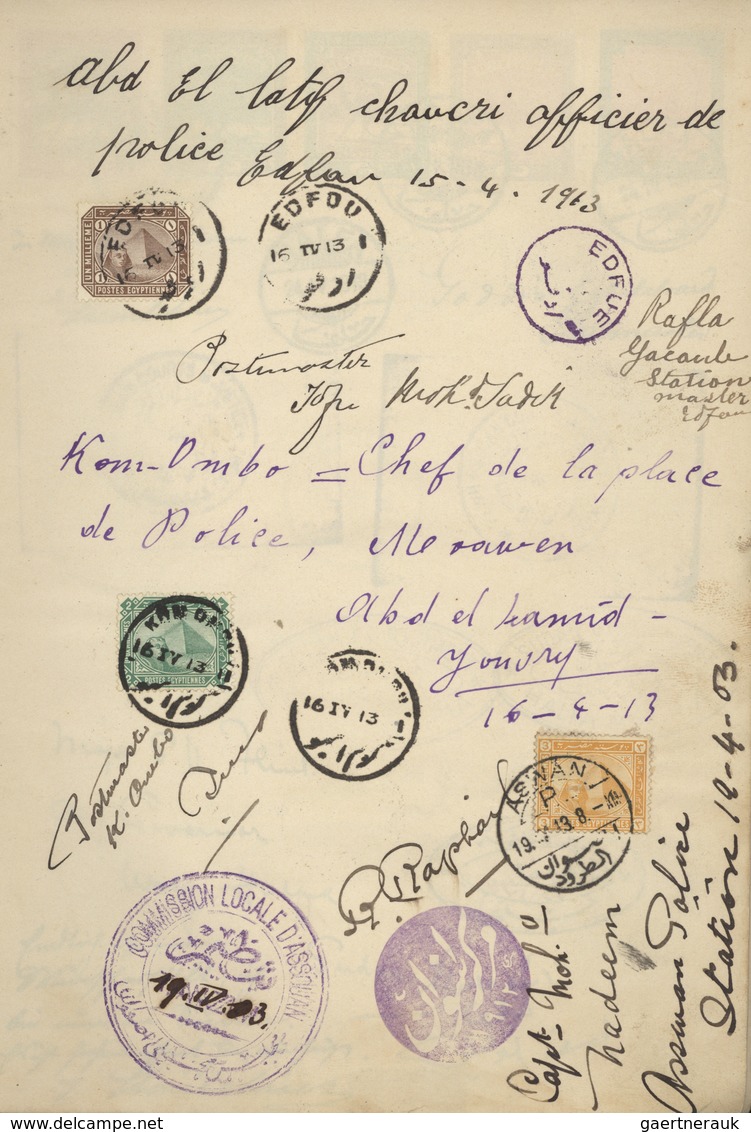 Abd El latif chaucri officier de
police Edfou 15-4. 1913
UN MILLIEME
POSTES EGYPTIENNES
EDFOU
16 IV 13
ادفو
EDFOU
16 IV 13
ادفو
EDFUE
ادفو
Rafla
Yacoub
Station
master
Edfou
Postmaster
Moh'd Sadik
Kom-Ombo = Chef de la place
de Police, Merawen
Abd el Hamid-
16-4-13
POSTES EGYPTIENNES
KOM OMBOU
16 IV 13
KOM OMBOU
16 IV 13
Postmaster
K. Ombo
POSTES EGYPTIENNES
ASWAN
P
19. IV 13. 8-
اسوان
الطرود
R. Raphael
COMMISSION LOCALE D'ASSOUAN
19.IV.03.
١٩١٢
Capt Moh. 
nadeem
Asswan Police
Station 19-4-03.
gaertnerauk